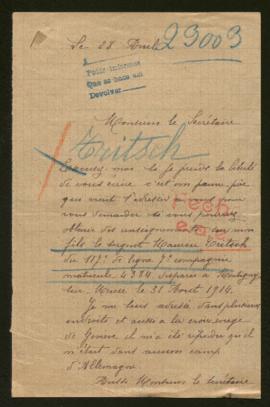 Le 28 Avril
23003
Pedir informes
Que se hace así
Devolver
Monsieur le Secrétaire
Tritsch
Excusez moi si je prends la liberté
de vous écrire c'est un pauvre père
qui vient s'adresser à vous pour
vous demander si vous pourriez
obtenir des renseignements sur mon
fils le sergent Maurice Tritsch
du 117e de ligne 7e compagnie
matricule 4384 disparu à
sur Meuse le 31 Aout 1914.
Je me suis adressé dans plusieurs
endroits et aussi à la croix rouge
de Genève il m'a été répondu qu'il
n'était dans aucun camp
d'Allemagne
Monsieur le Secrétaire